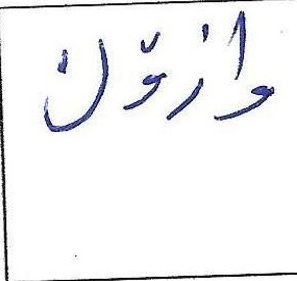 وازوّن